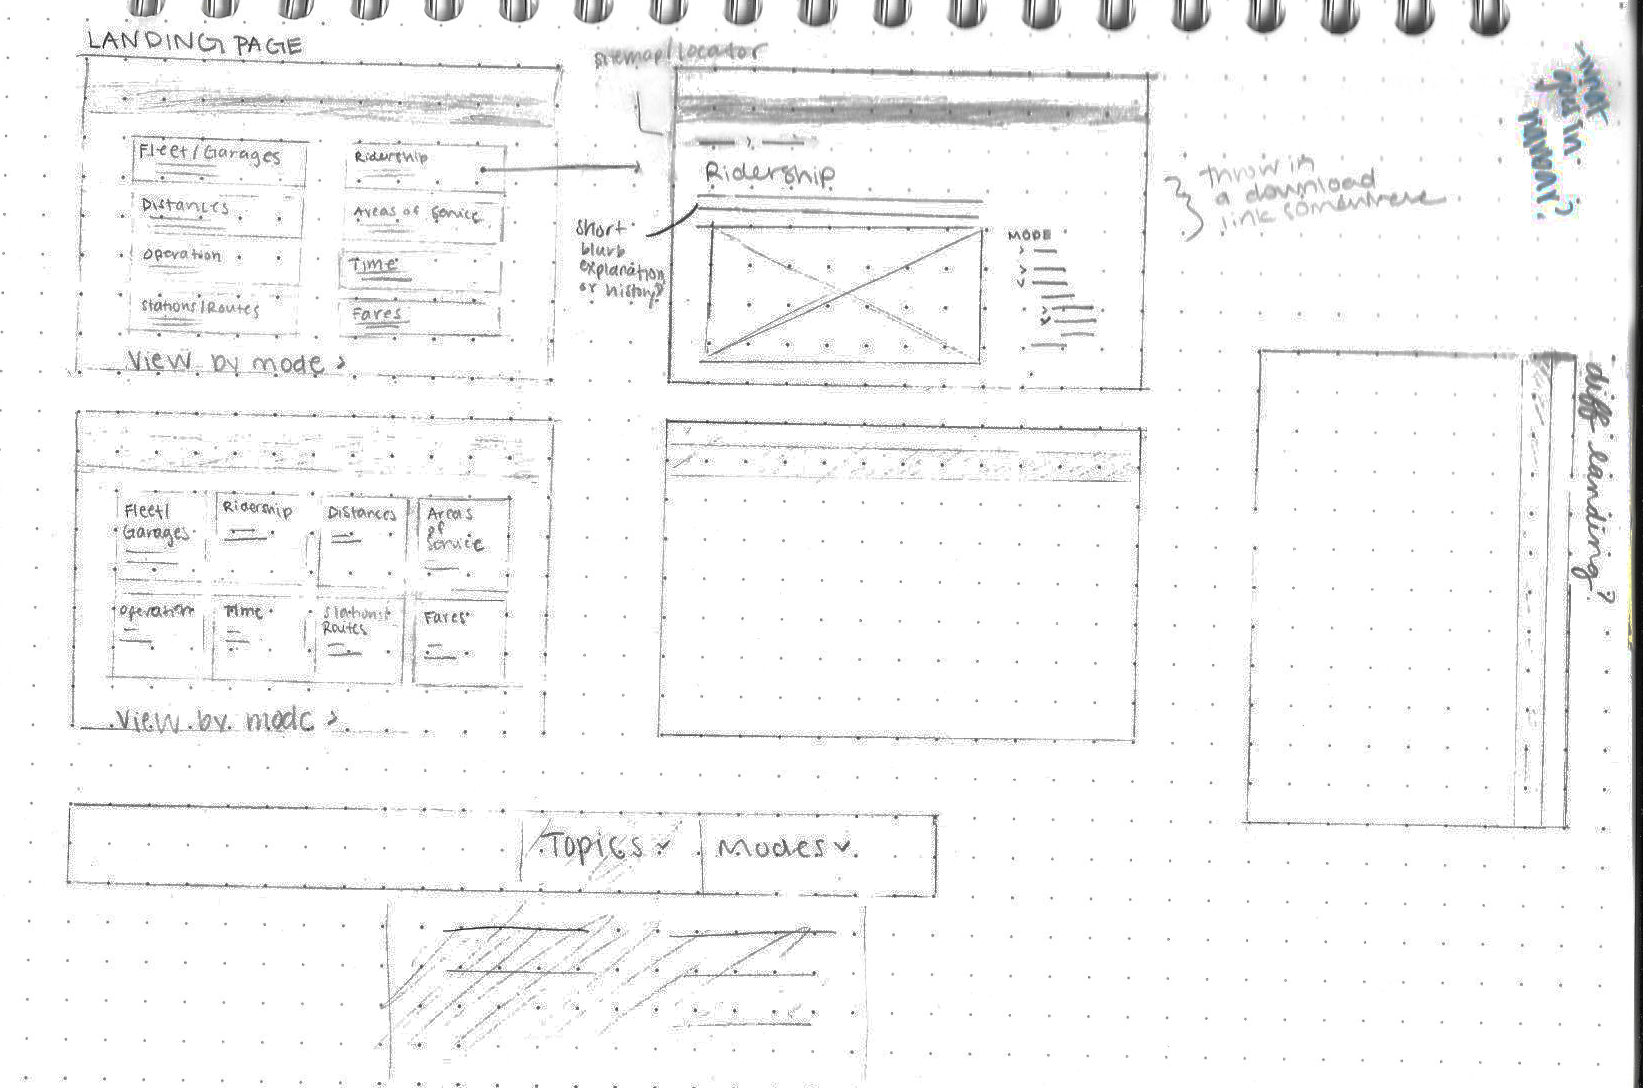 LANDING PAGE
sitemap/locator
Fleet/Garages
Ridership
Distances
Areas of Service
Operation
Time
Stations/Routes
Fares
View by mode >
Ridership
short
blurb
explanation
or history?
MODE
throw in
a download
link somewhere
what
goes in
navbar?
diff landing?
Fleet/
Garages
Ridership
Distances
Areas
of
Service
Operation
Time
Stations
Routes
Fares
View by mode >
Topics
Modes